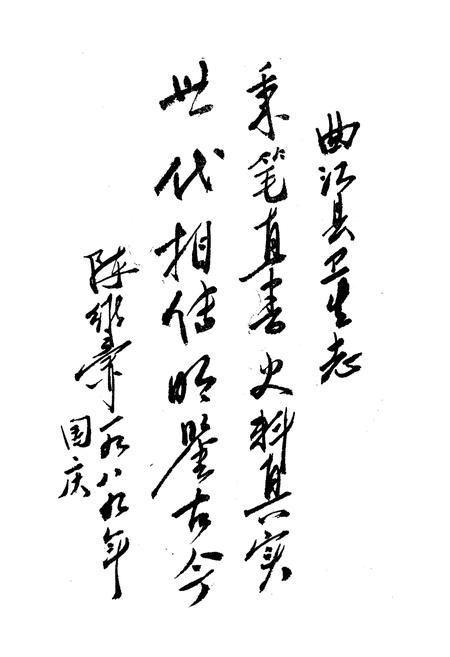 曲江县卫生志
秉笔直书史料真实
世代相传明鉴古今
陈 一九八九年
国庆